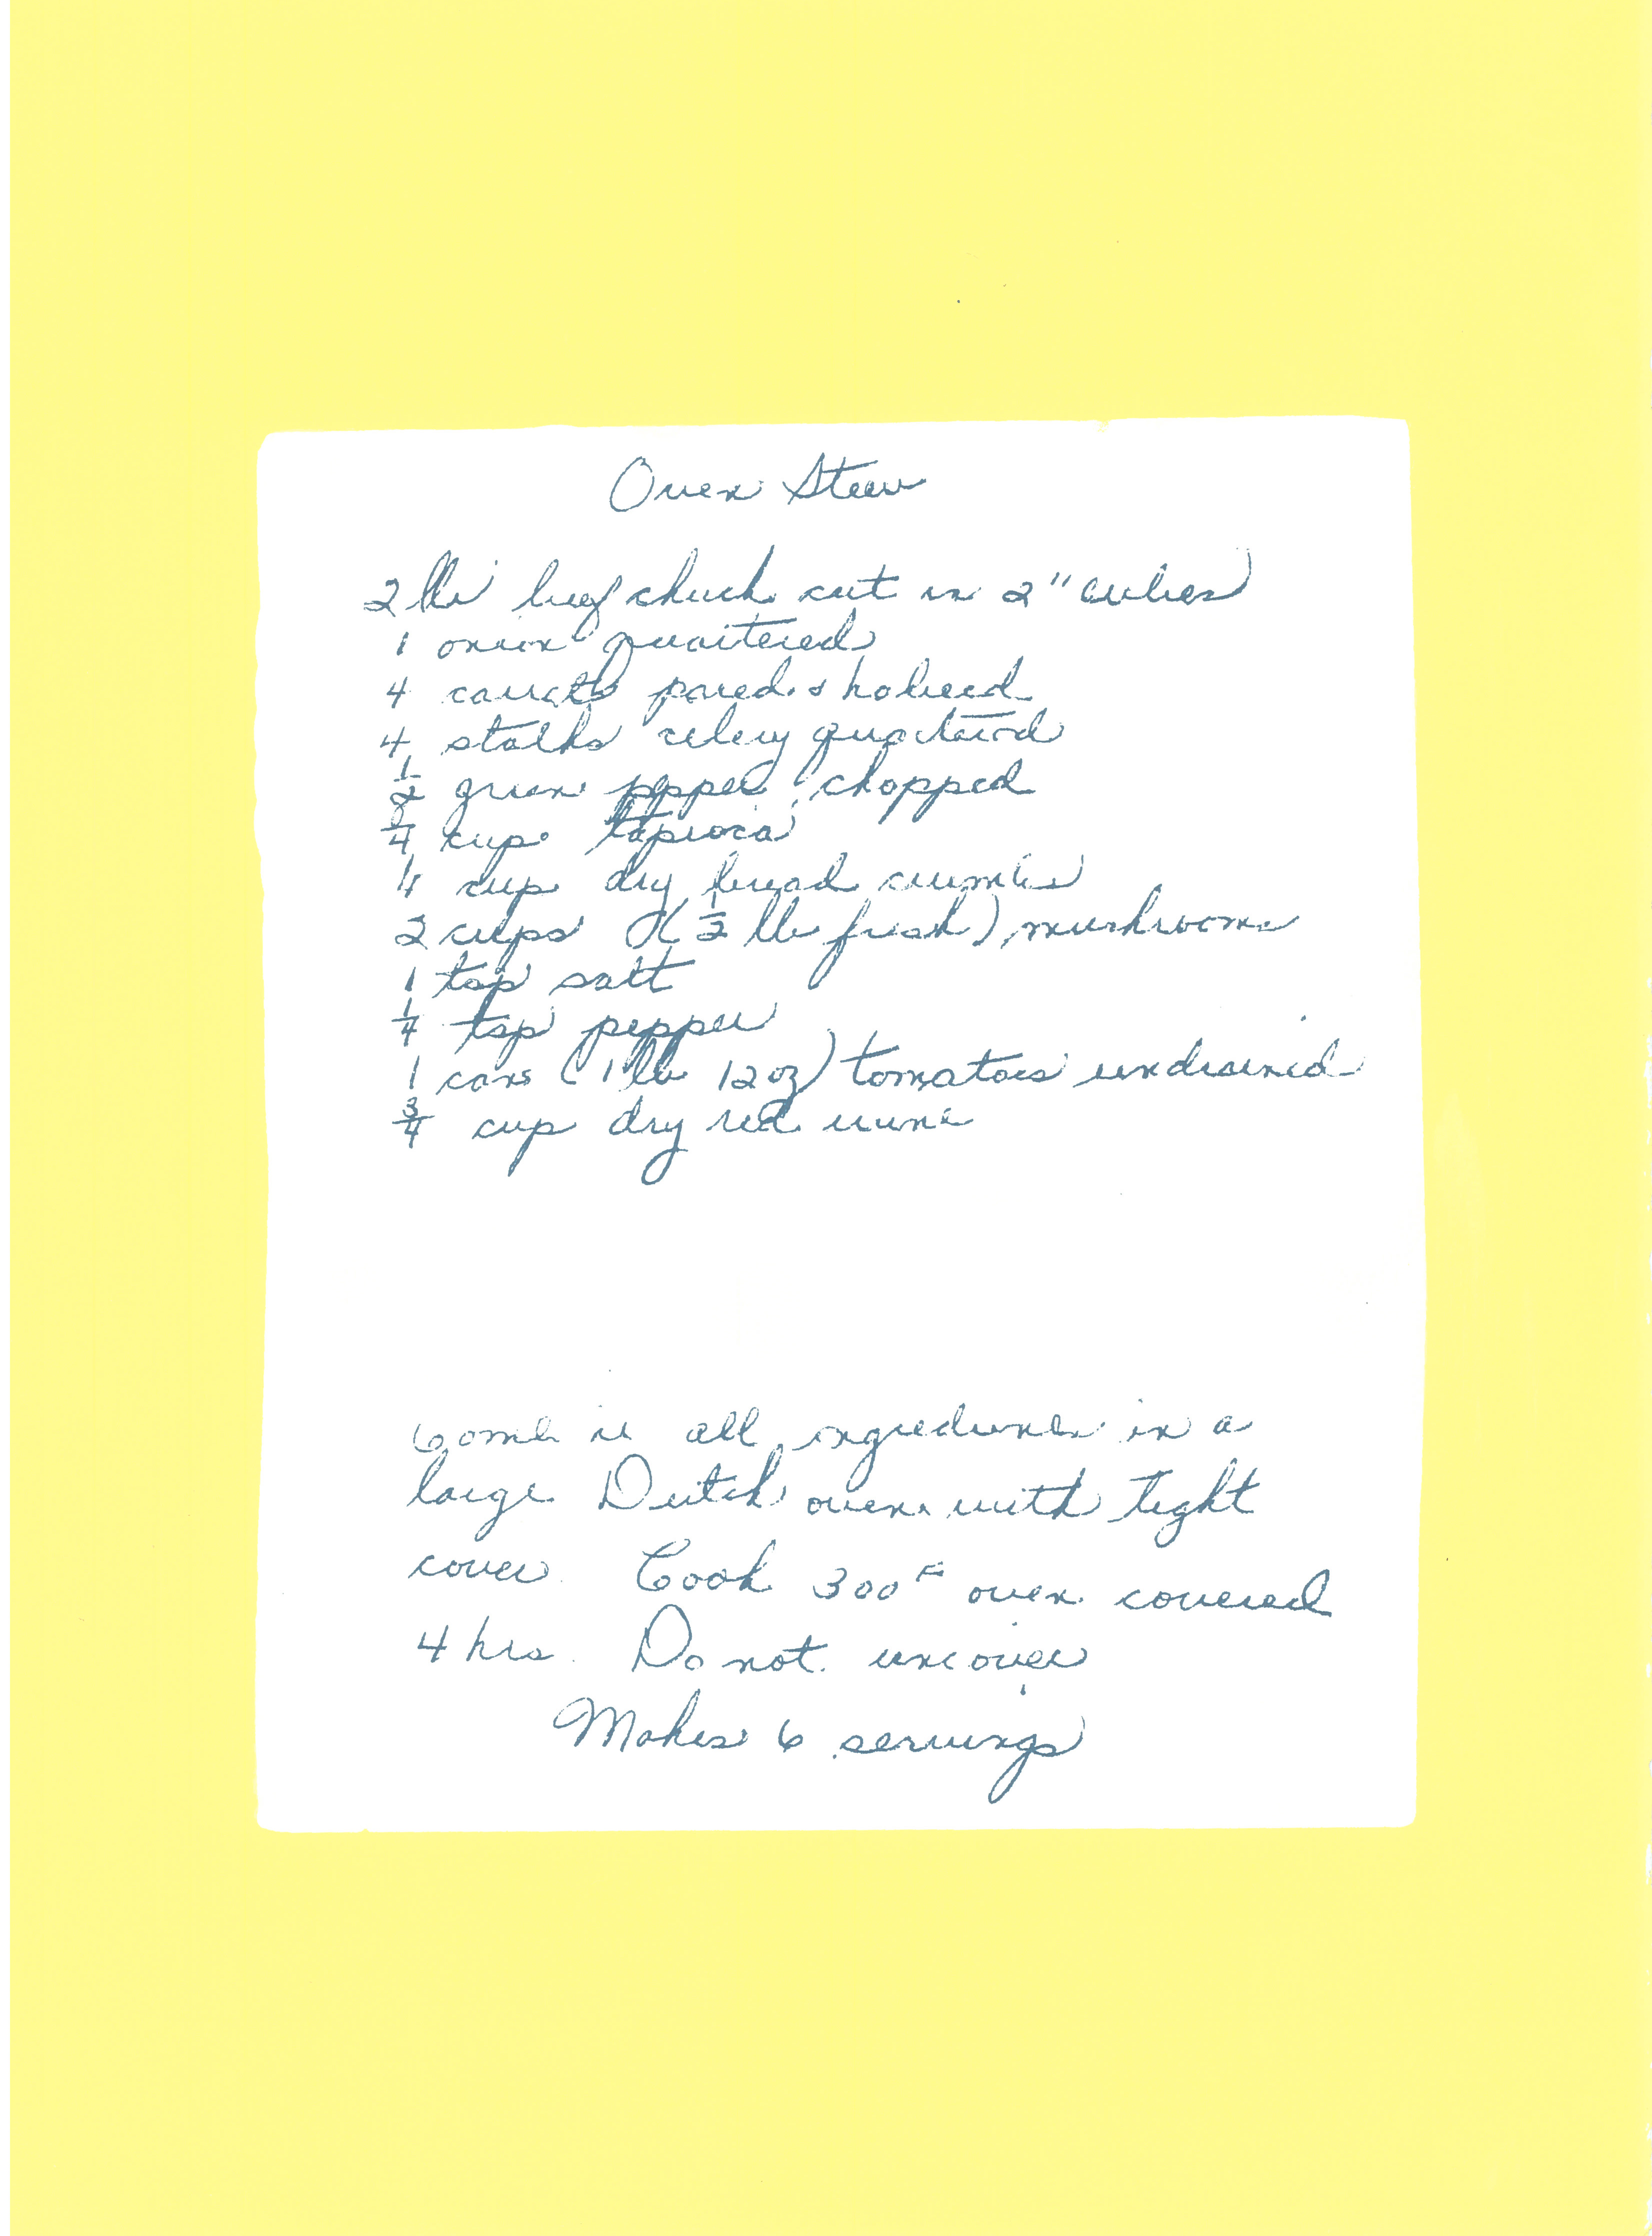 Oven Stew
2 lb beef chuck cut in 2" cubes
1 onion quartered
4 carrots pared & halved
4 stalks celery quartered
1/2 green pepper chopped
cup tapioca
cup dry bread crumbs
2 cups (1/2 lb fresh) mushrooms
1 tsp salt
1/4 tsp pepper
1 cans (1 lb 12 oz) tomatoes undrained
3/4 cup dry red wine
Combine all ingredients in a
large Dutch oven with tight
cover. Cook 300° oven covered
4 hrs. Do not uncover
Makes 6 servings